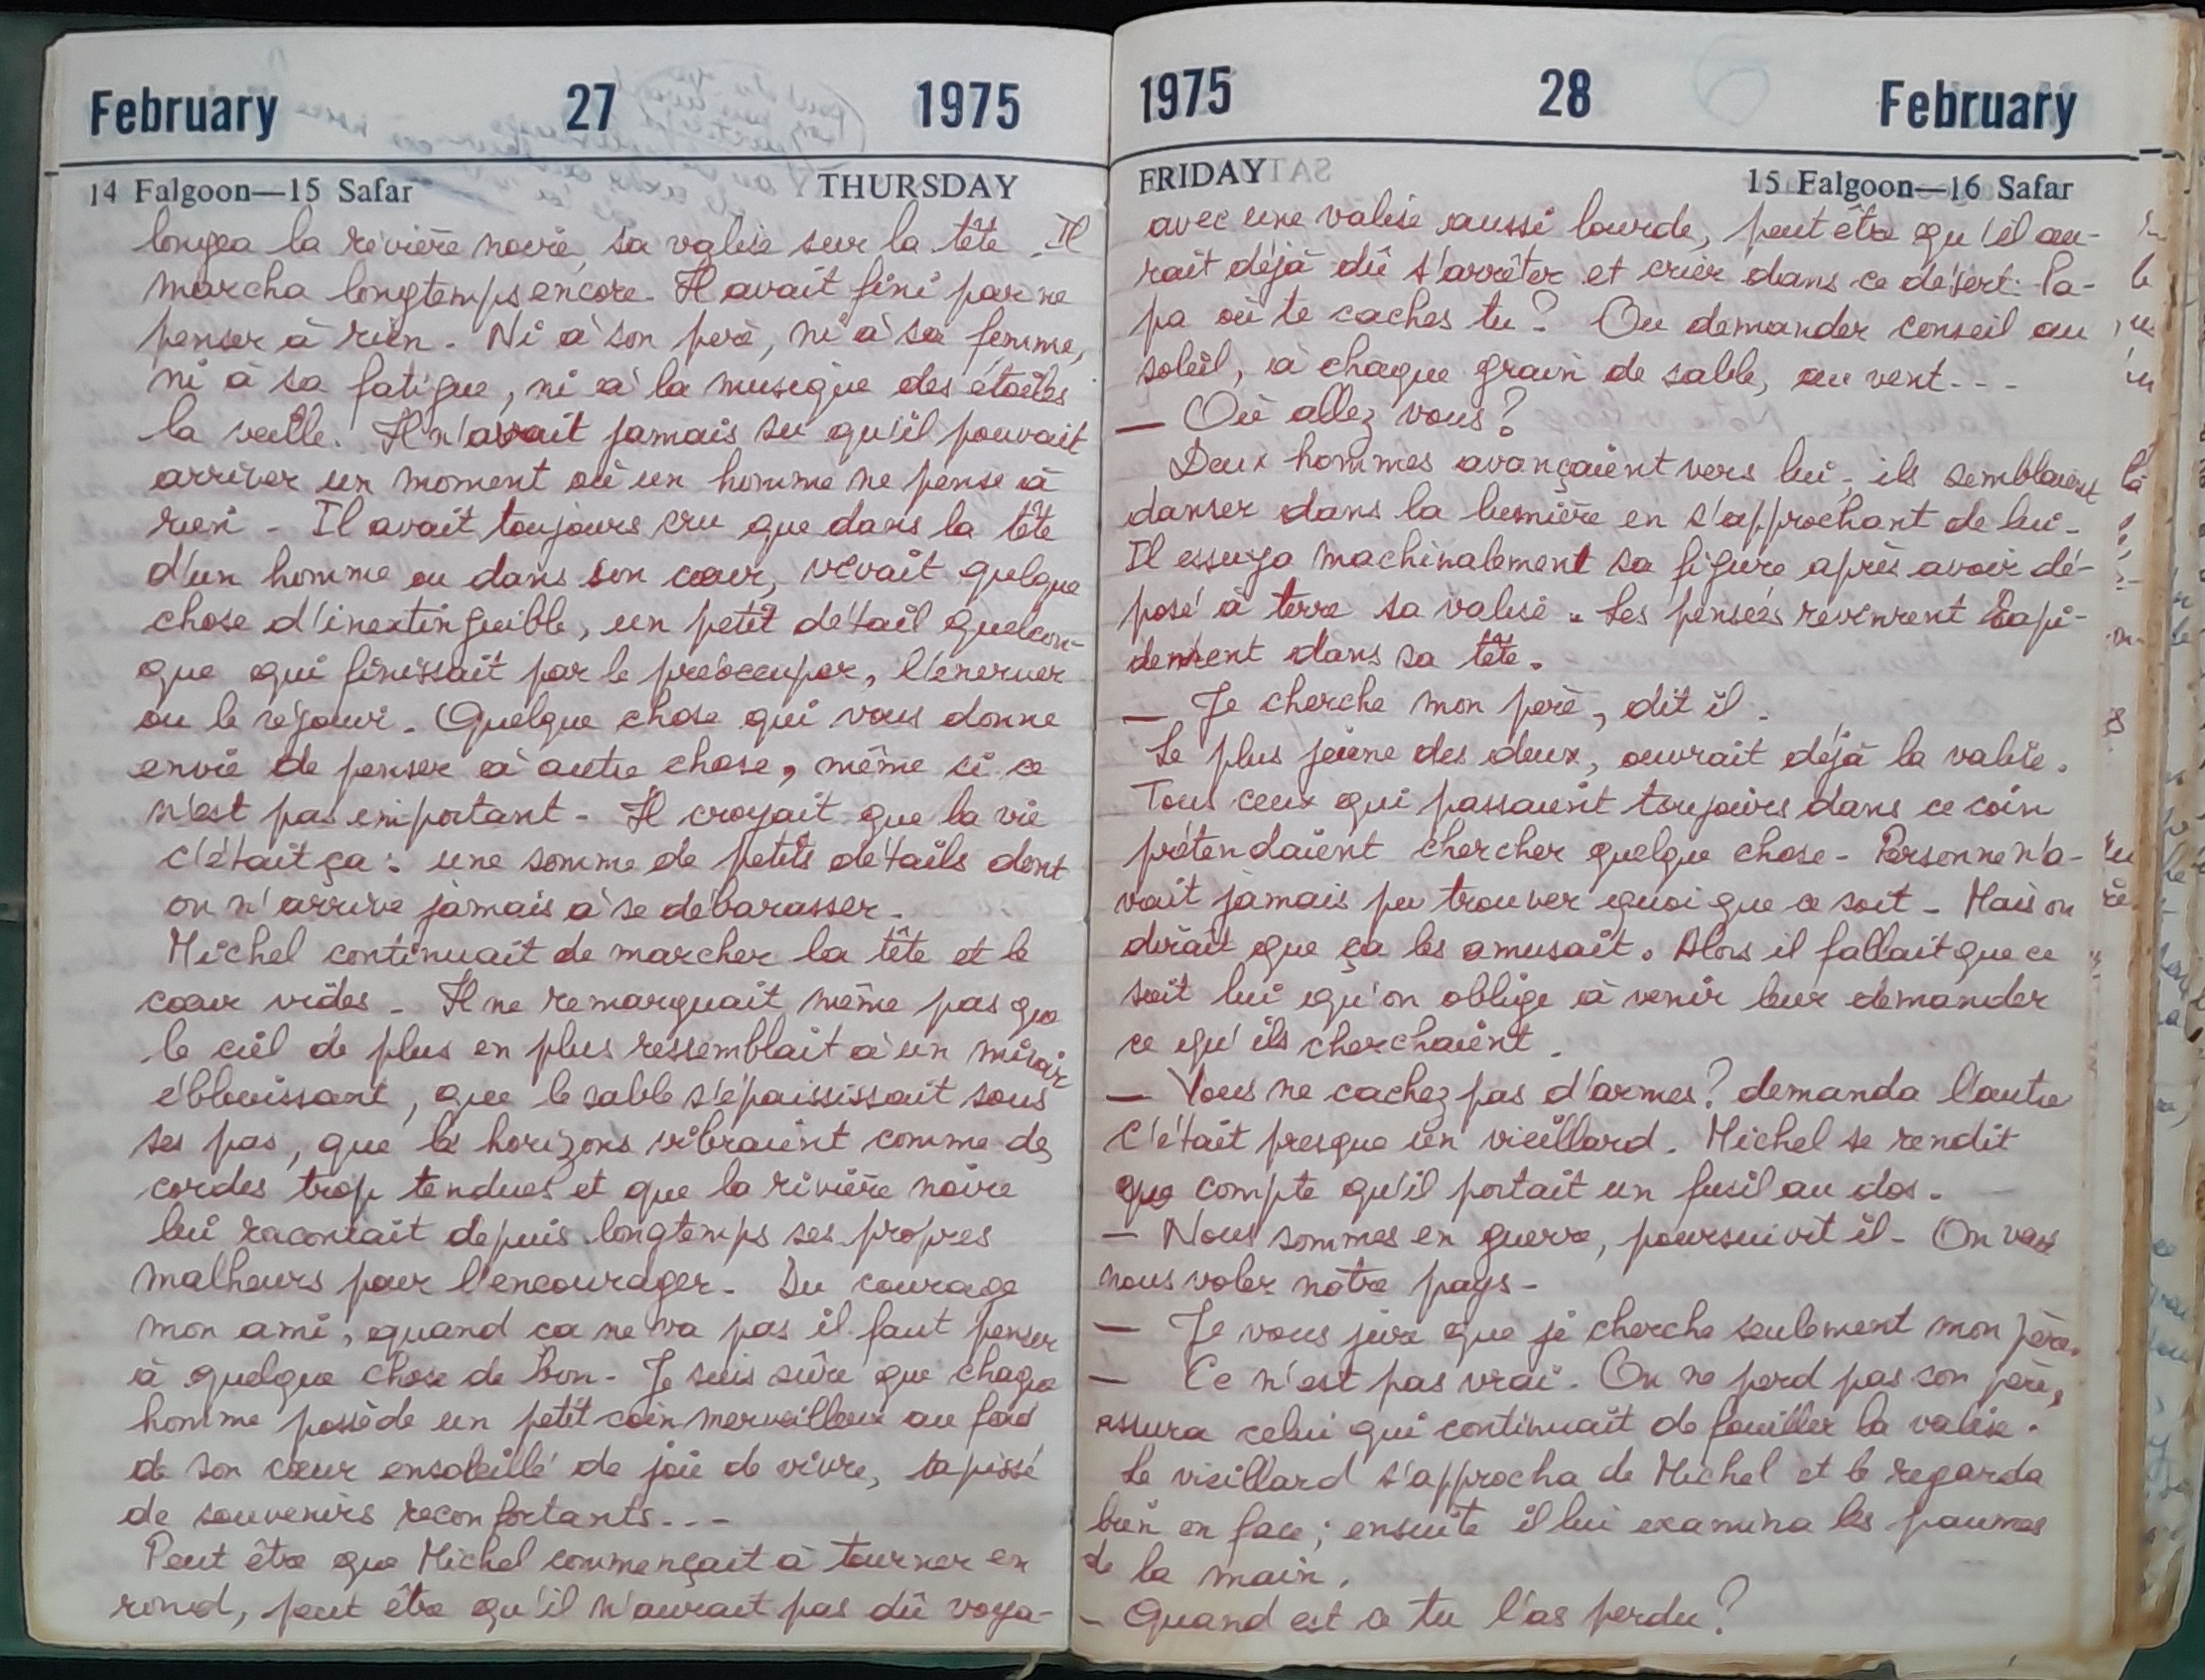 February 27 1975
14 Falgoon—15 Safar THURSDAY
longea la rivière noire, sa valise sur la tête. Il
marcha longtemps encore. Il avait fini par ne
penser à rien. Ni à son père, ni à sa femme,
ni à sa fatigue, ni à la musique des étoiles
la veille. Il n'avait jamais su qu'il pouvait
arriver un moment où un homme ne pense à
rien. Il avait toujours cru que dans la tête
d'un homme ou dans son cœur, vivait quelque
chose d'inextinguible, un petit détail quelcon-
que qui finissait par le préoccuper, l'énerver
ou le réjouir. Quelque chose qui vous donne
envie de penser à autre chose, même si ce
n'est pas important. Il croyait que la vie
c'était ça : une somme de petits détails dont
on n'arrive jamais à se débarasser.
Michel continuait de marcher la tête et le
cœur vides. Il ne remarquait même pas que
le ciel de plus en plus ressemblait à un miroir
éblouissant, que le sable s'épaississait sous
ses pas, que les horizons vibraient comme des
cordes trop tendues et que la rivière noire
lui racontait depuis longtemps ses propres
malheurs pour l'encourager. Du courage
mon ami, quand ca ne va pas il faut penser
à quelque chose de bon. Je suis sûre que chaque
homme possède un petit coin merveilleux au fond
de son cœur ensoleillé de joie de vivre, tapissé
de souvenirs reconfortants...
Peut être que Michel commençait à tourner en
rond, peut être qu'il n'aurait pas dû voya-
1975 28 February
FRIDAY 15 Falgoon—16 Safar
avec une valise aussi lourde, peut être qu'il au-
rait déjà dû s'arrêter et crier dans ce désert: Pa-
pa où te caches tu? Ou demander conseil au
soleil, à chaque grain de sable, au vent...
— Où allez vous?
Deux hommes avançaient vers lui, ils semblaient
danser dans la lumière en s'approchant de lui.
Il essuya machinalement sa figure après avoir dé-
posé à terre sa valise. Les pensées revinrent rapi-
dement dans sa tête.
— Je cherche mon père, dit il.
Le plus jeune des deux, ouvrait déjà la valise.
Tous ceux qui passaient toujours dans ce coin
prétendaient chercher quelque chose. Personne n'a-
vait jamais pu trouver quoi que ce soit. Mais on
dirait que ça les amusait. Alors il fallait que ce
soit lui qu'on oblige à venir leur demander
ce qu'ils cherchaient.
— Vous ne cachez pas d'armes? demanda l'autre
C'était presque un vieillard. Michel se rendit
que compte qu'il portait un fusil au dos.
— Nous sommes en guerre, poursuivit il. On veut
nous voler notre pays.
— Je vous jure que je cherche seulement mon père.
— Ce n'est pas vrai. On ne perd pas son père,
assura celui qui continuait de fouiller la valise.
Le vieillard s'approcha de Michel et le regarda
bien en face; ensuite il lui examina les paumes
de la main.
— Quand est ce tu l'as perdu?